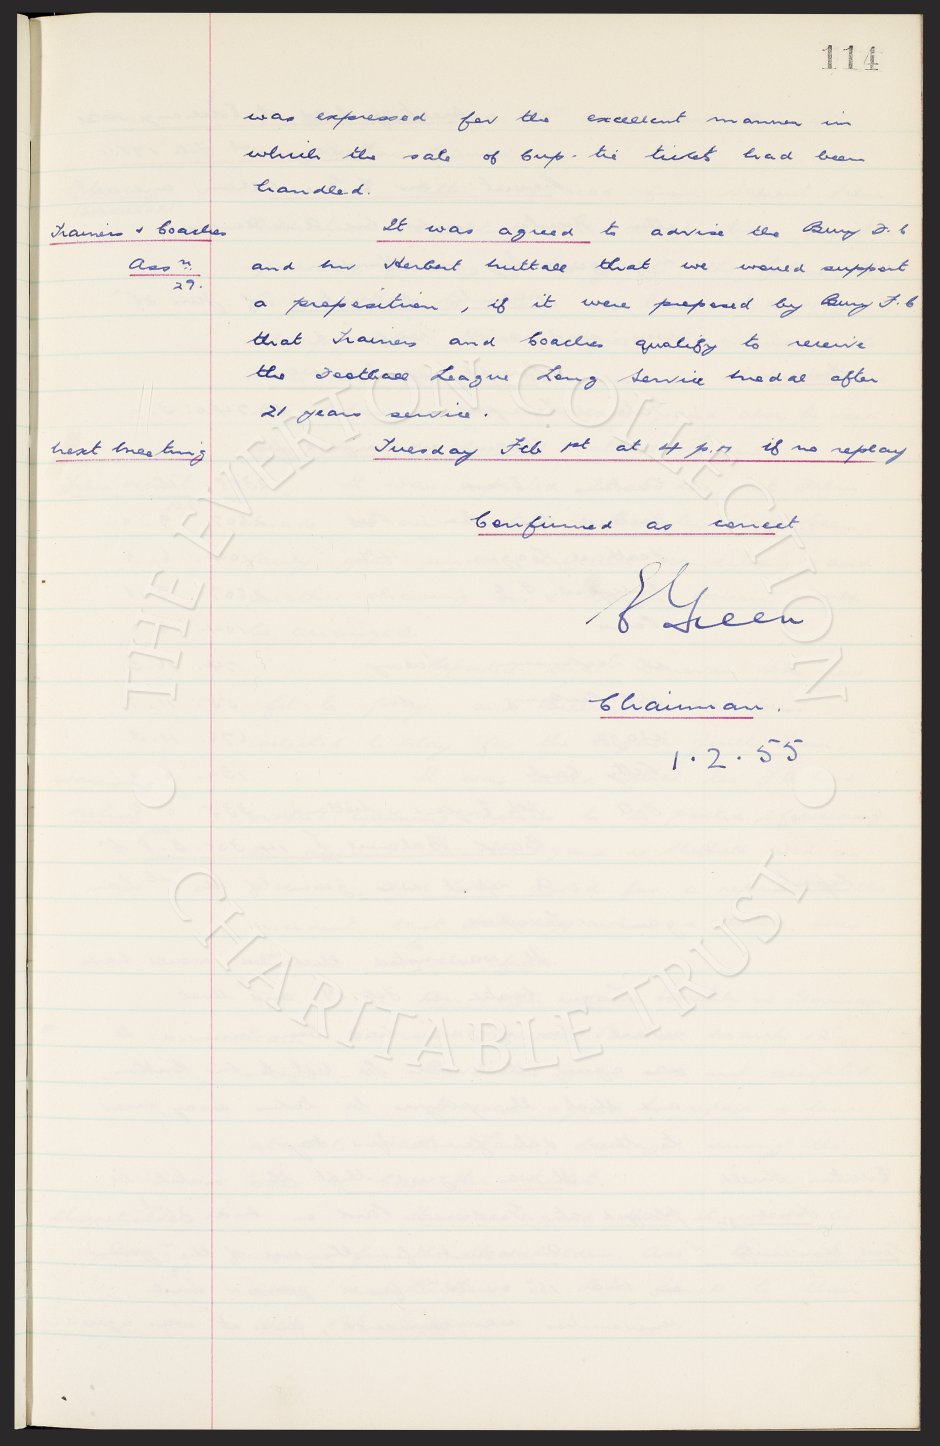 114
was expressed for the excellent manner in
which the sale of Cup-tie tickets had been
handled.
Trainers & Coaches
Assn.
29.
It was agreed to advise the Bury F.C
and Mr Herbert Nuttall that we would support
a proposition, if it were proposed by Bury F.C
that Trainers and Coaches qualify to receive
the Football League Long Service Medal after
21 years service.
Next Meeting
Tuesday Feb 1st at 4 p.m if no replay
Confirmed as correct
E Green
Chairman.
1.2.55
THE EVERTON COLLECTION
CHARITABLE TRUST